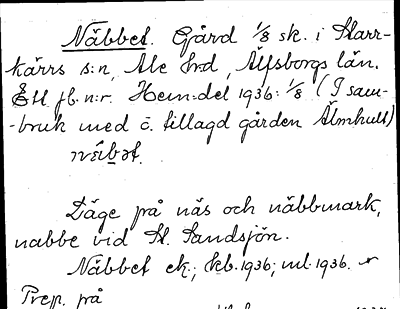 Näbbet. Gård 1/8 sk. i Starr-
kärrs s:n, Ale hrd, Älfsborgs län.
Ett jb. n:r. Hem:del 1936: 1/8 (I sam-
-bruk med č. tillagd gården Älmhult)
Läge på näs och näbbmark,
nabbe vid St. Sandsjön.
Näbbet ek.; kb. 1936; ml. 1936.
Prep. på